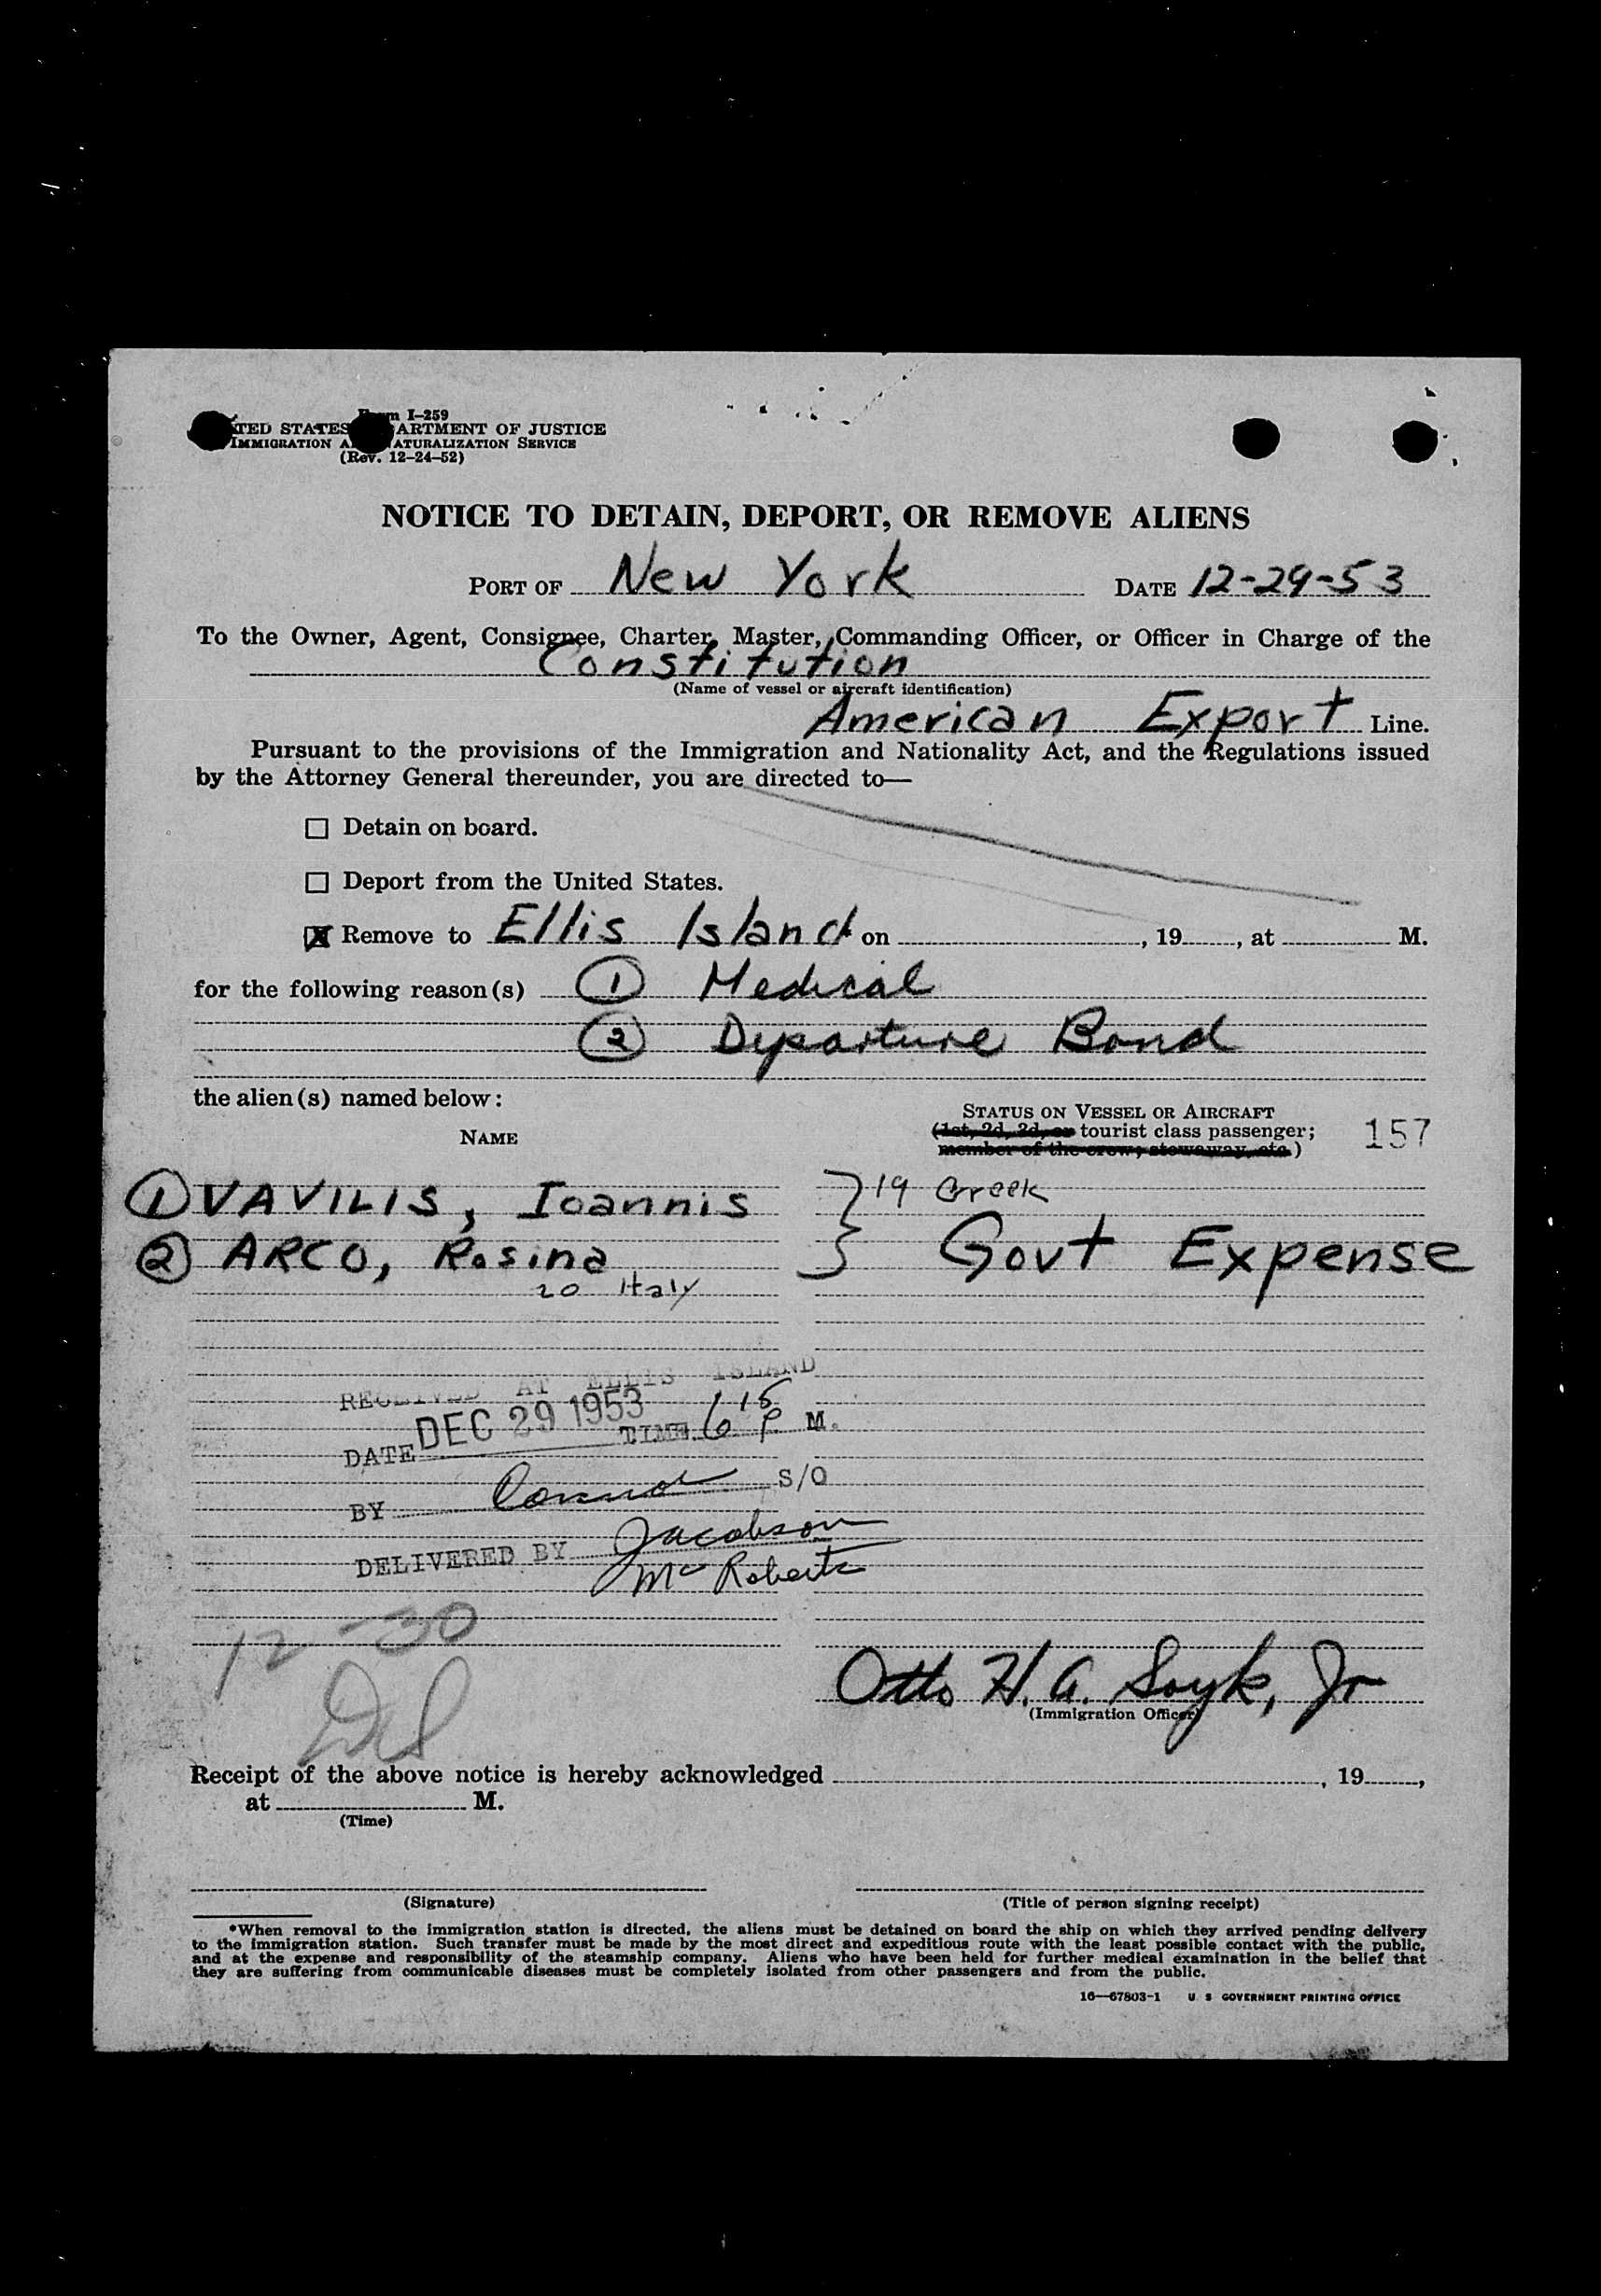 Form I-259
UNITED STATES DEPARTMENT OF JUSTICE
IMMIGRATION AND NATURALIZATION SERVICE
(Rev. 12-24-52)
NOTICE TO DETAIN, DEPORT, OR REMOVE ALIENS
PORT OF New York DATE 12-29-53
To the Owner, Agent, Consignee, Charter, Master, Commanding Officer, or Officer in Charge of the
Constitution
(Name of vessel or aircraft identification)
American Export Line.
Pursuant to the provisions of the Immigration and Nationality Act, and the Regulations issued
by the Attorney General thereunder, you are directed to—
☐ Detain on board.
☐ Deport from the United States.
☒ Remove to Ellis Island* on , 19 , at M.
for the following reason(s) ① Medical
② Departure Bond
the alien(s) named below:
NAME
STATUS ON VESSEL OR AIRCRAFT
(1st, 2d, 3d, or tourist class passenger;
member of the crew; stowaway, etc.)
157
① VAVILIS, Ioannis } 19 Greek
② ARCO, Rosina } Govt Expense
20 Italy
RECEIVED AT ELLIS ISLAND
DATE DEC 29 1953 TIME 6 15 P. M.
BY Connor S/O
DELIVERED BY Jacobson
McRoberts
12-30
Otto H. G. Soyk, Jr
(Immigration Officer)
Receipt of the above notice is hereby acknowledged , 19 ,
at M.
(Time)
(Signature)
(Title of person signing receipt)
*When removal to the immigration station is directed, the aliens must be detained on board the ship on which they arrived pending delivery
to the immigration station. Such transfer must be made by the most direct and expeditious route with the least possible contact with the public,
and at the expense and responsibility of the steamship company. Aliens who have been held for further medical examination in the belief that
they are suffering from communicable diseases must be completely isolated from other passengers and from the public.
16—67803-1 U. S. GOVERNMENT PRINTING OFFICE